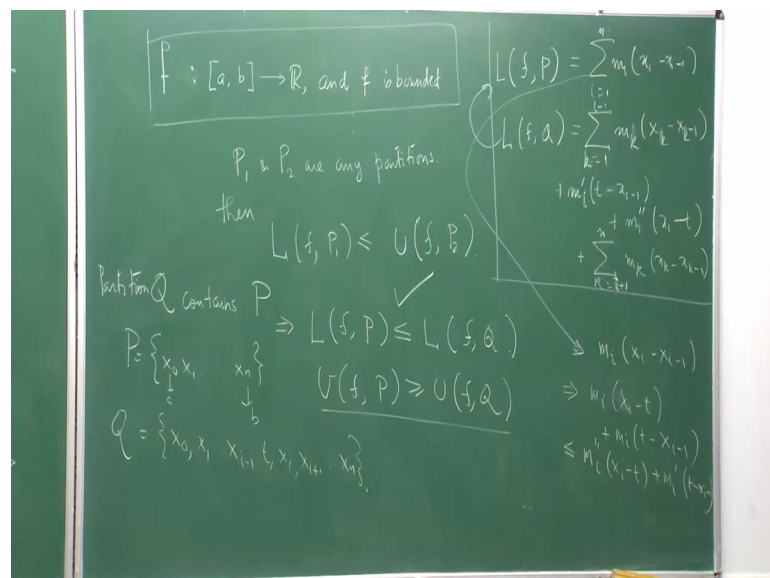 f : [a, b] → R, and f is bounded
P₁ & P₂ are any partitions.
then
L(f, P₁) ≤ U(f, P₂)
Partition Q contains P.
⇒ L(f, P) ≤ L(f, Q)
U(f, P) ≥ U(f, Q)
P = {x₀ x₁ . . . xₙ}
a b
Q = {x₀, x₁ . . xᵢ₋₁ t, xᵢ, xᵢ₊₁ . . xₙ}.
L(f, P) = ∑ᵢ₌₁ⁿ mᵢ(xᵢ - xᵢ₋₁)
L(f, Q) = ∑ₖ₌₁ⁱ⁻¹ mₖ(xₖ - xₖ₋₁)
+ mᵢ′(t - xᵢ₋₁)
+ mᵢ″(xᵢ - t)
+ ∑ₖ₌ᵢ₊₁ⁿ mₖ(xₖ - xₖ₋₁)
mᵢ(xᵢ - xᵢ₋₁)
⇒ mᵢ(xᵢ - t)
+ mᵢ(t - xᵢ₋₁)
≤ mᵢ″(xᵢ - t) + mᵢ′(t - xᵢ₋₁)